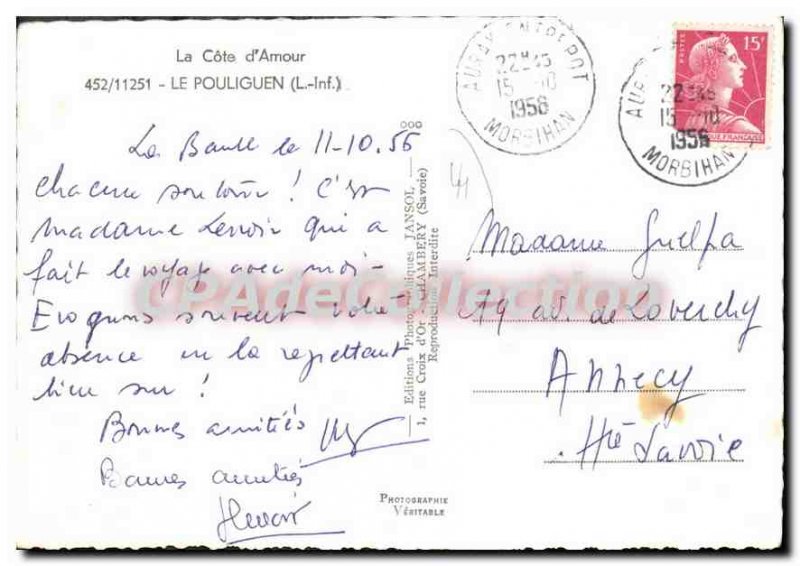 La Côte d'Amour
452/11251 - LE POULIGUEN (L.-Inf.)
La Baule le 11-10.56
chacune son tour ! C'est
madame Lenoir qui a
fait le voyage avec moi -
Evoquons souvent votre
absence en la regrettant
bien sur !
Bonnes amitiés
Bonnes amitiés
Lenoir
ooo
Editions Photographiques JANSOL
1, rue Croix d'Or - CHAMBERY (Savoie)
Reproduction Interdite
PHOTOGRAPHIE
VÉRITABLE
AURAY ENTREPOT
22H45
15-10
1956
MORBIHAN
AURAY
22H45
15 10
1956
MORBIHAN
POSTES
15F
RÉPUBLIQUE FRANÇAISE
Madame Guelpa
79 av. de Loverchy
Annecy
Hte Savoie
CPAdeCollection